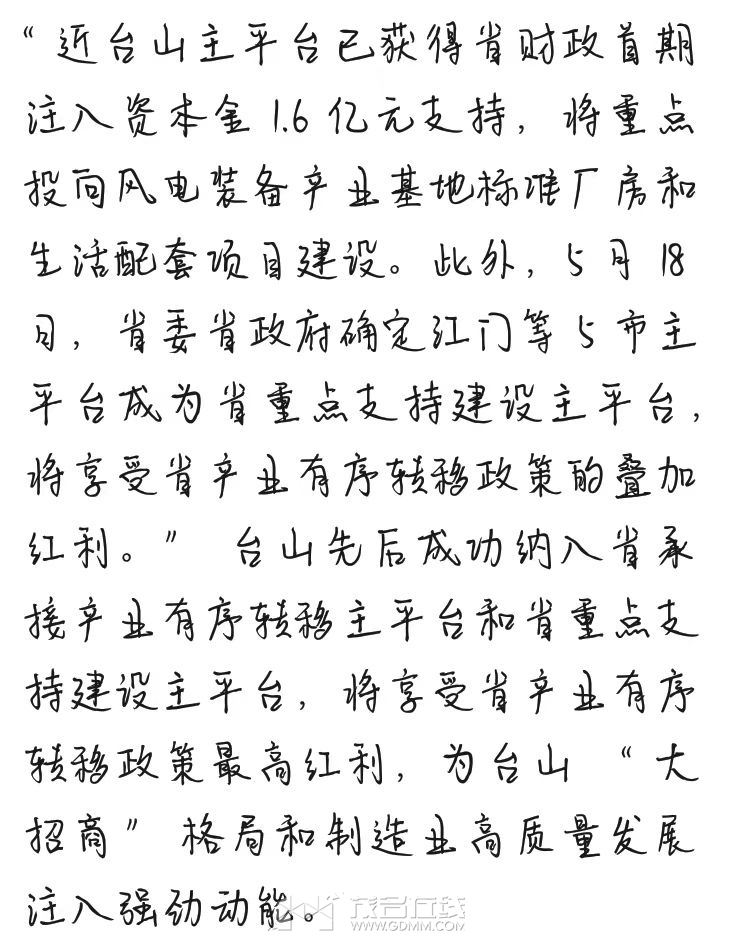 “近台山主平台已获得省财政首期
注入资本金1.6亿元支持，将重点
投向风电装备产业基地标准厂房和
生活配套项目建设。此外，5月18
日，省委省政府确定江门等5市主
平台成为省重点支持建设主平台，
将享受省产业有序转移政策的叠加
红利。” 台山先后成功纳入省承
接产业有序转移主平台和省重点支
持建设主平台，将享受省产业有序
转移政策最高红利，为台山“大
招商”格局和制造业高质量发展
注入强劲动能。
茂名在线
WWW.GDMM.COM